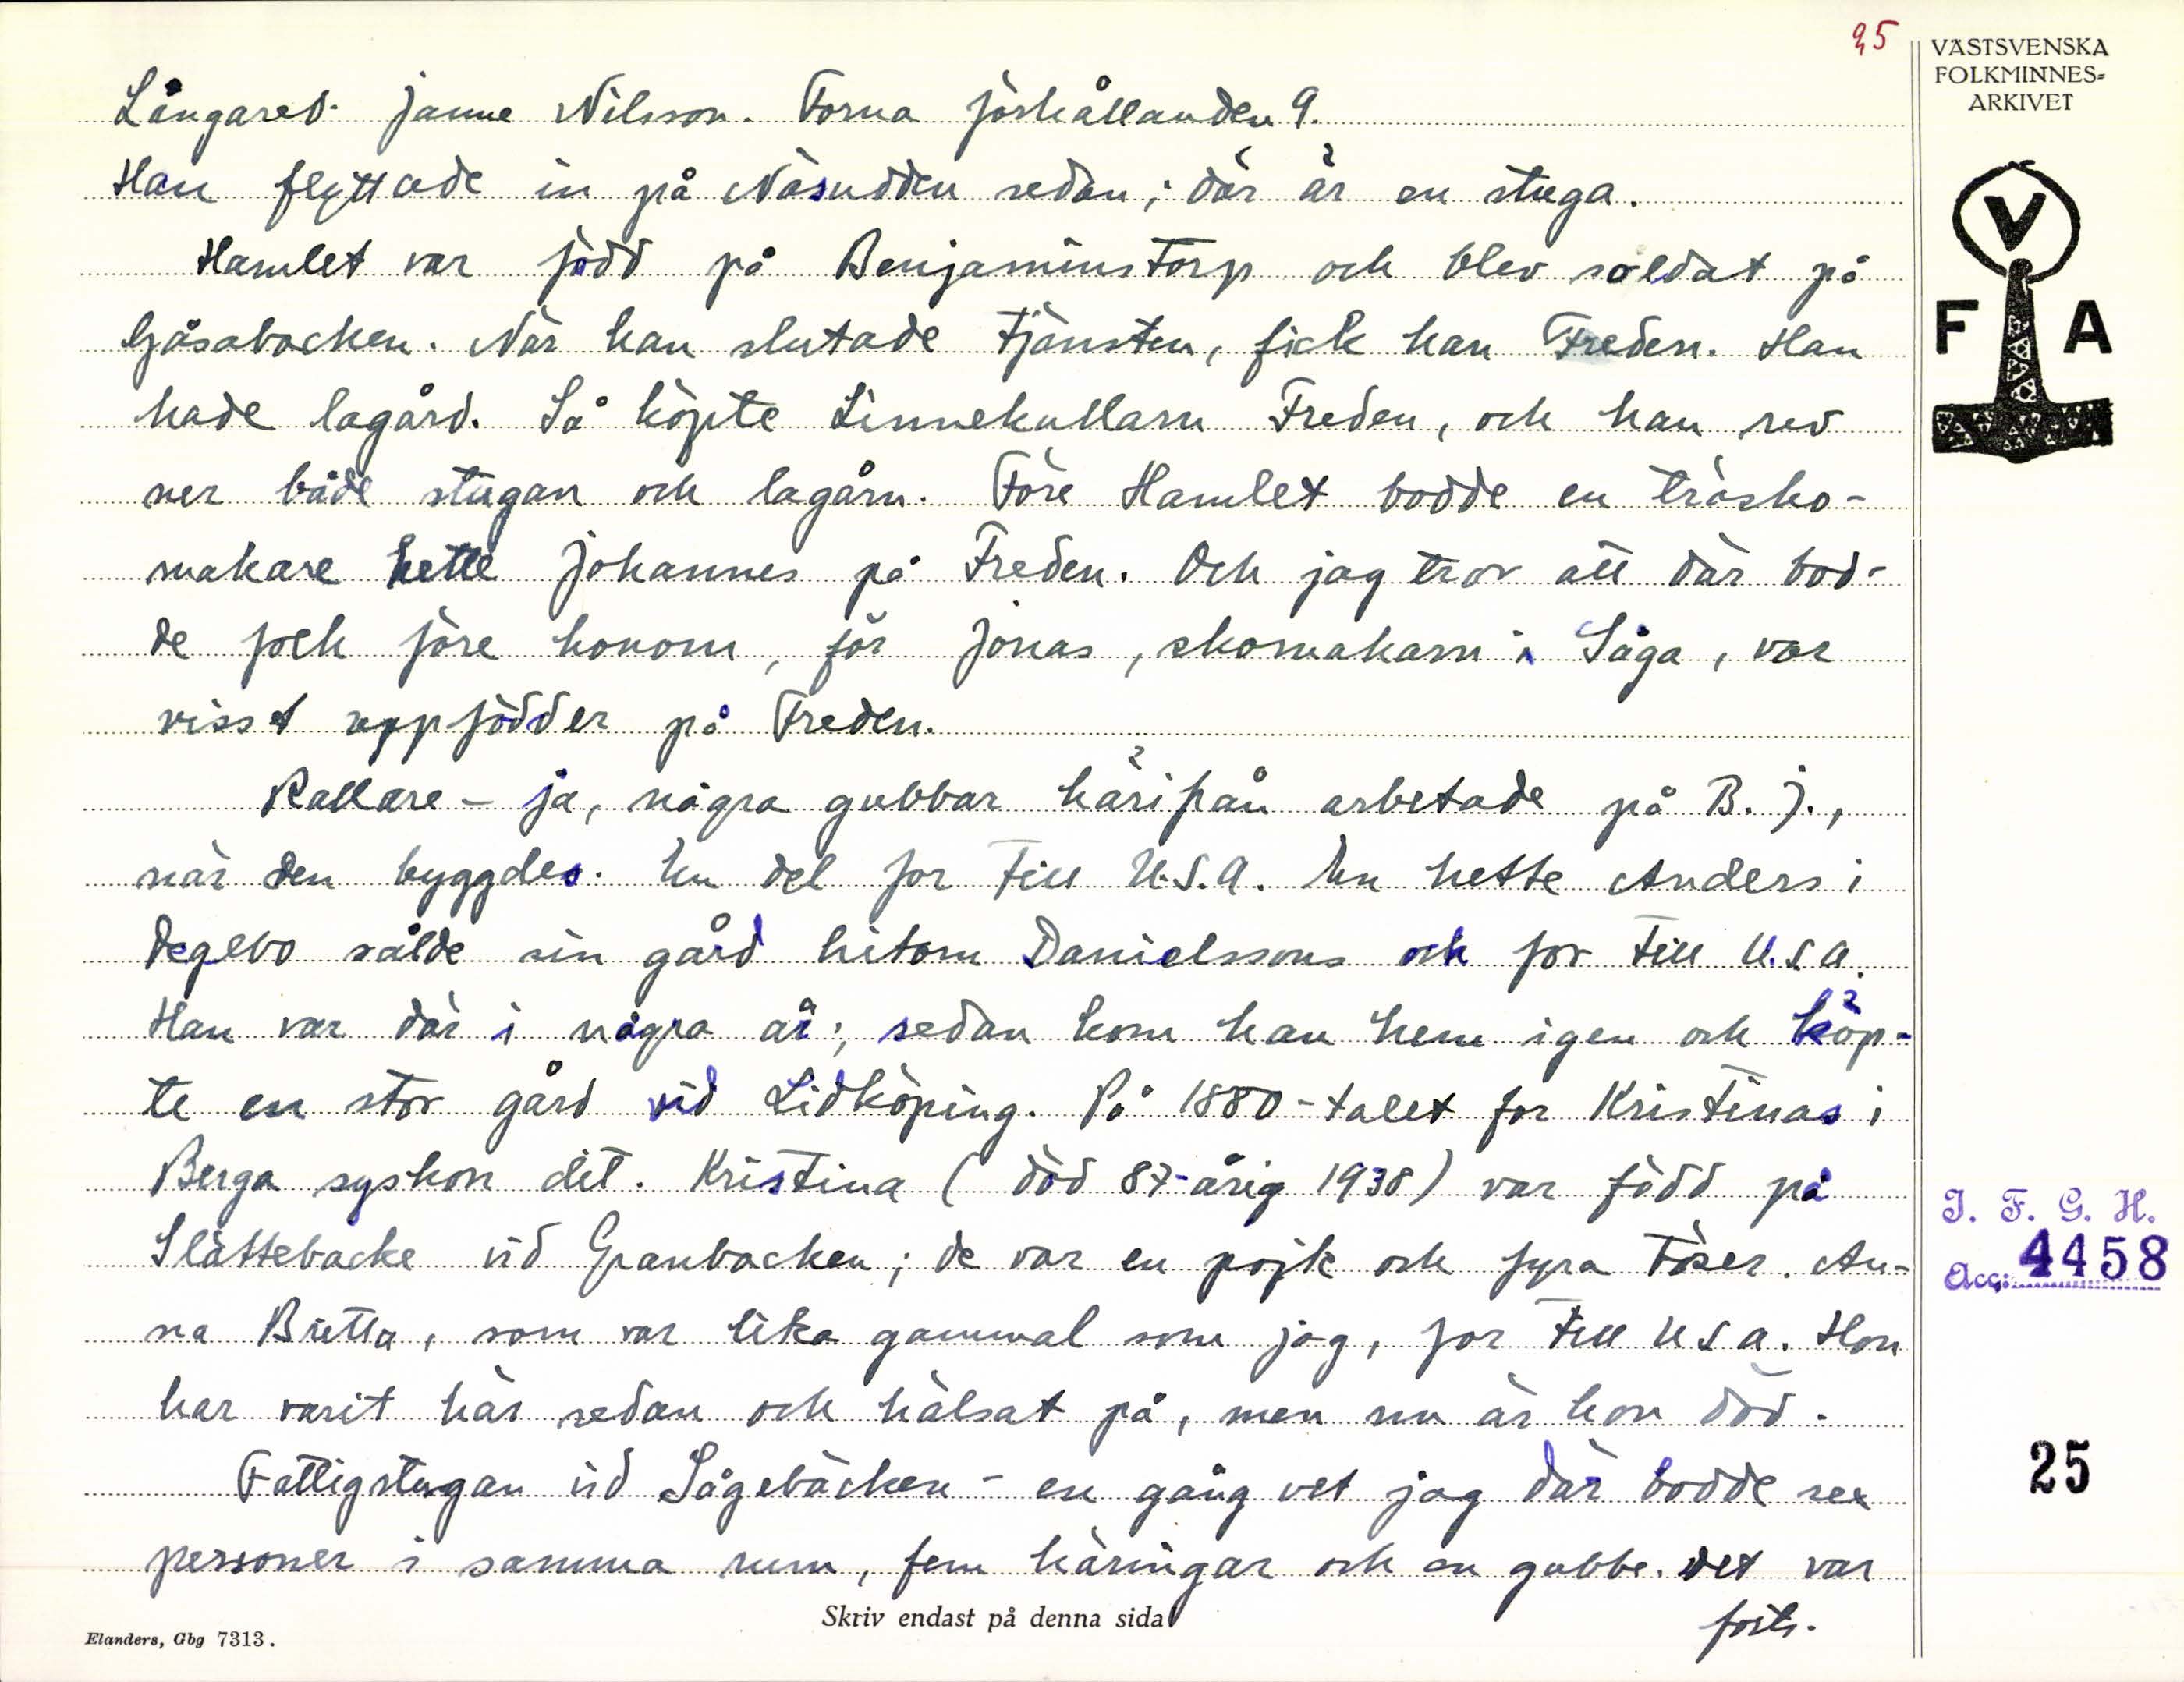 25
VÄSTSVENSKA
FOLKMINNES-
ARKIVET
V
F A
Långared. Janne Nilsson. Forna förhållanden 9.
Han flyttade in på Näsudden sedan; där är en stuga.
Hamlet var född på Benjaminstorp och blev soldat på
Gåsabacken. När han slutade tjänsten, fick han Freden. Han
hade lagård. Så köpte Linnekullarn Freden, och han rev
ner både stugan och lagårn. Före Hamlet bodde en träsko-
makare hette Johannes på Freden. Och jag tror att där bod-
de folk före honom, för Jonas, skomakarn i Såga, var
visst uppfödder på Freden.
Rallare - ja, några gubbar härifrån arbetade på B.J.,
när den byggdes. En del for till U.S.A. En hette Anders i
Degebo sålde sin gård hitom Danielssons och for till U.S.A.
Han var där i några år; sedan kom han hem igen och köp-
te en stor gård vid Lidköping. På 1880-talet for Kristinas i
Berga syskon dit. Kristina (död 87-årig 1938) var född på
Slättebacke vid Granbacken; de var en pojk och fyra töser. An-
na Britta, som var lika gammal som jag, for till U S A. Hon
har varit här sedan och hälsat på, men nu är hon död.
Fattigstugan vid Sågebäcken - en gång vet jag där bodde sex
personer i samma rum, fem käringar och en gubbe. Det var
forts.
Skriv endast på denna sida
Elanders, Gbg 7313.
I. F. G. H.
Acc: 4458
25